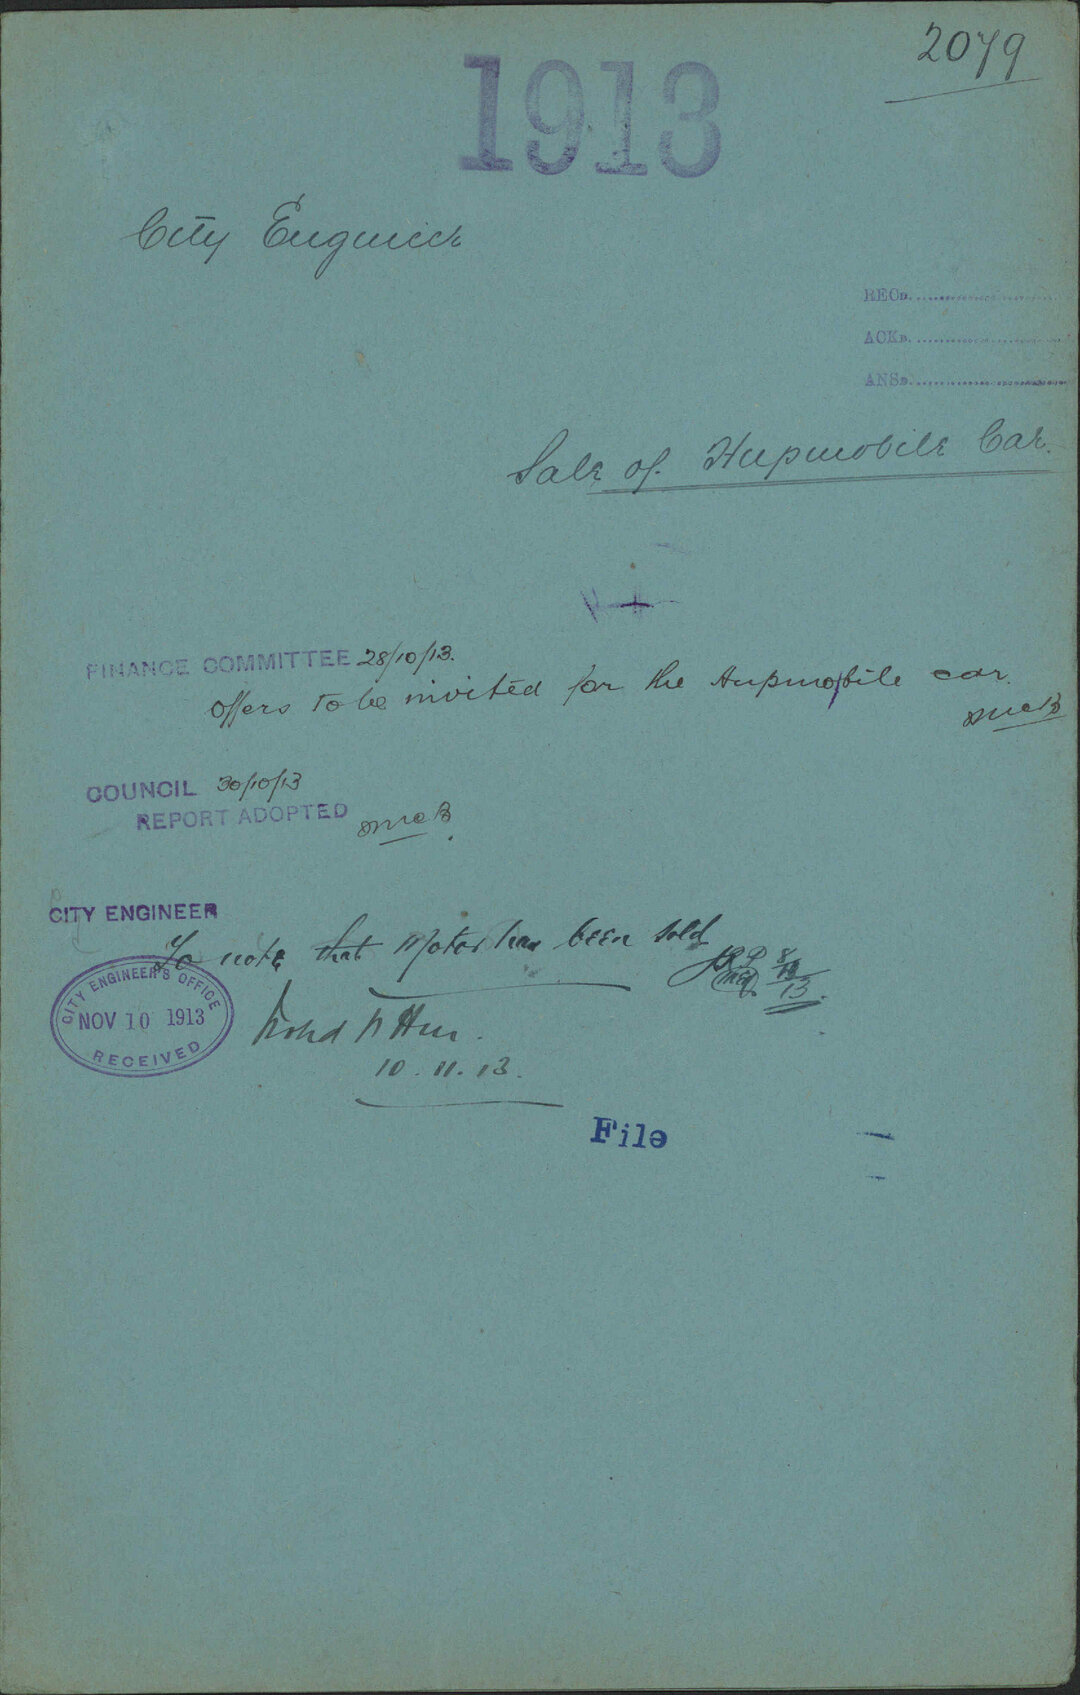 2079
1913
City Engineer
RECD.
ACKD.
ANSD.
Sale of Hupmobile Car.
FINANCE COMMITTEE 28/10/13.
Offers to be invited for the Hupmobile car.
COUNCIL 30/10/13
REPORT ADOPTED
CITY ENGINEER
To note that Motor has been sold
CITY ENGINEER'S OFFICE
NOV 10 1913
RECEIVED
10.11.13.
File